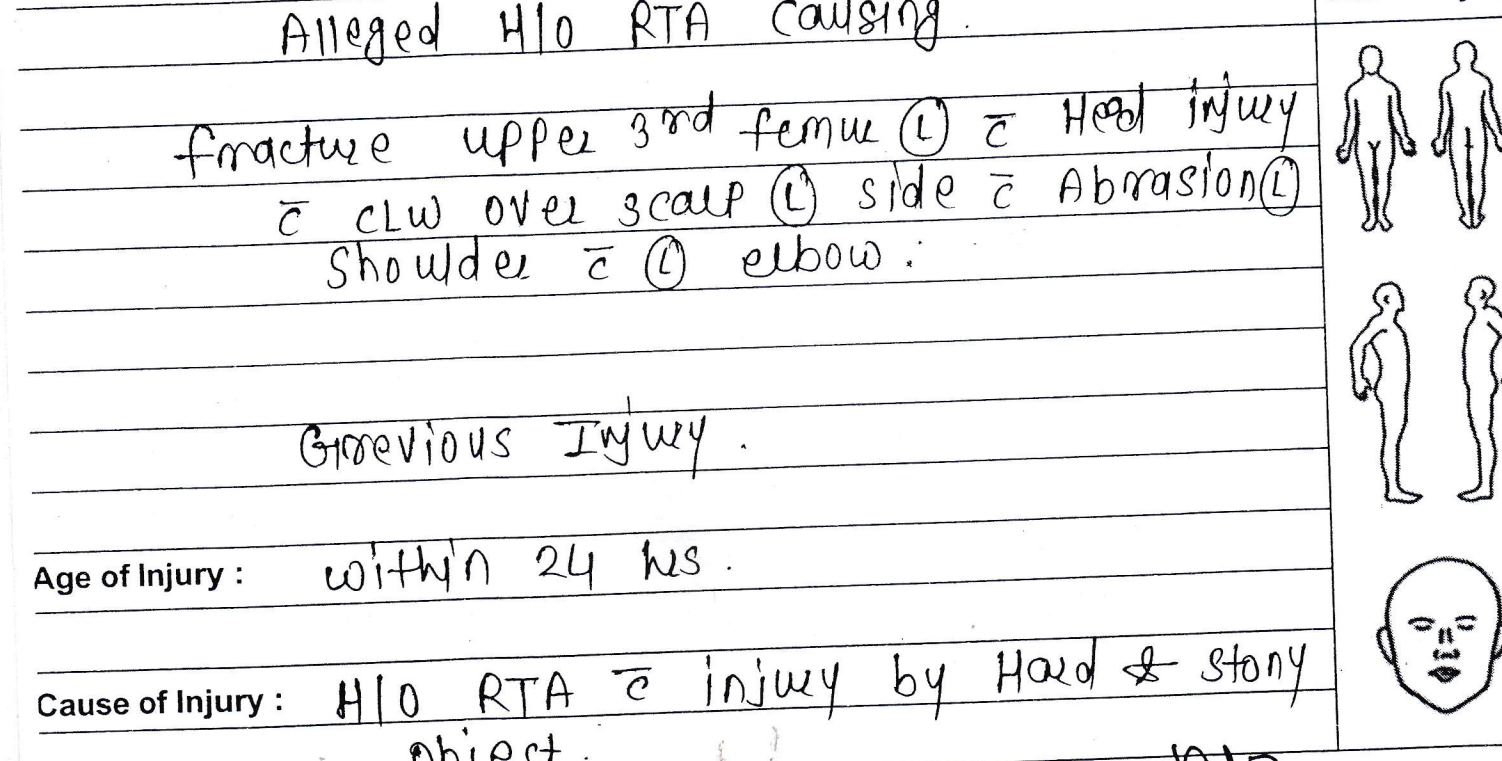 Alleged H/O RTA causing.
fracture upper 3rd femur Ⓛ c̄ Head injury
c̄ CLW over scalp Ⓛ side c̄ Abrasion Ⓛ
Shoulder c̄ Ⓛ elbow.
Grrevious Injury.
Age of Injury : within 24 hrs.
Cause of Injury : H/O RTA c̄ injury by Hard & stony
object.